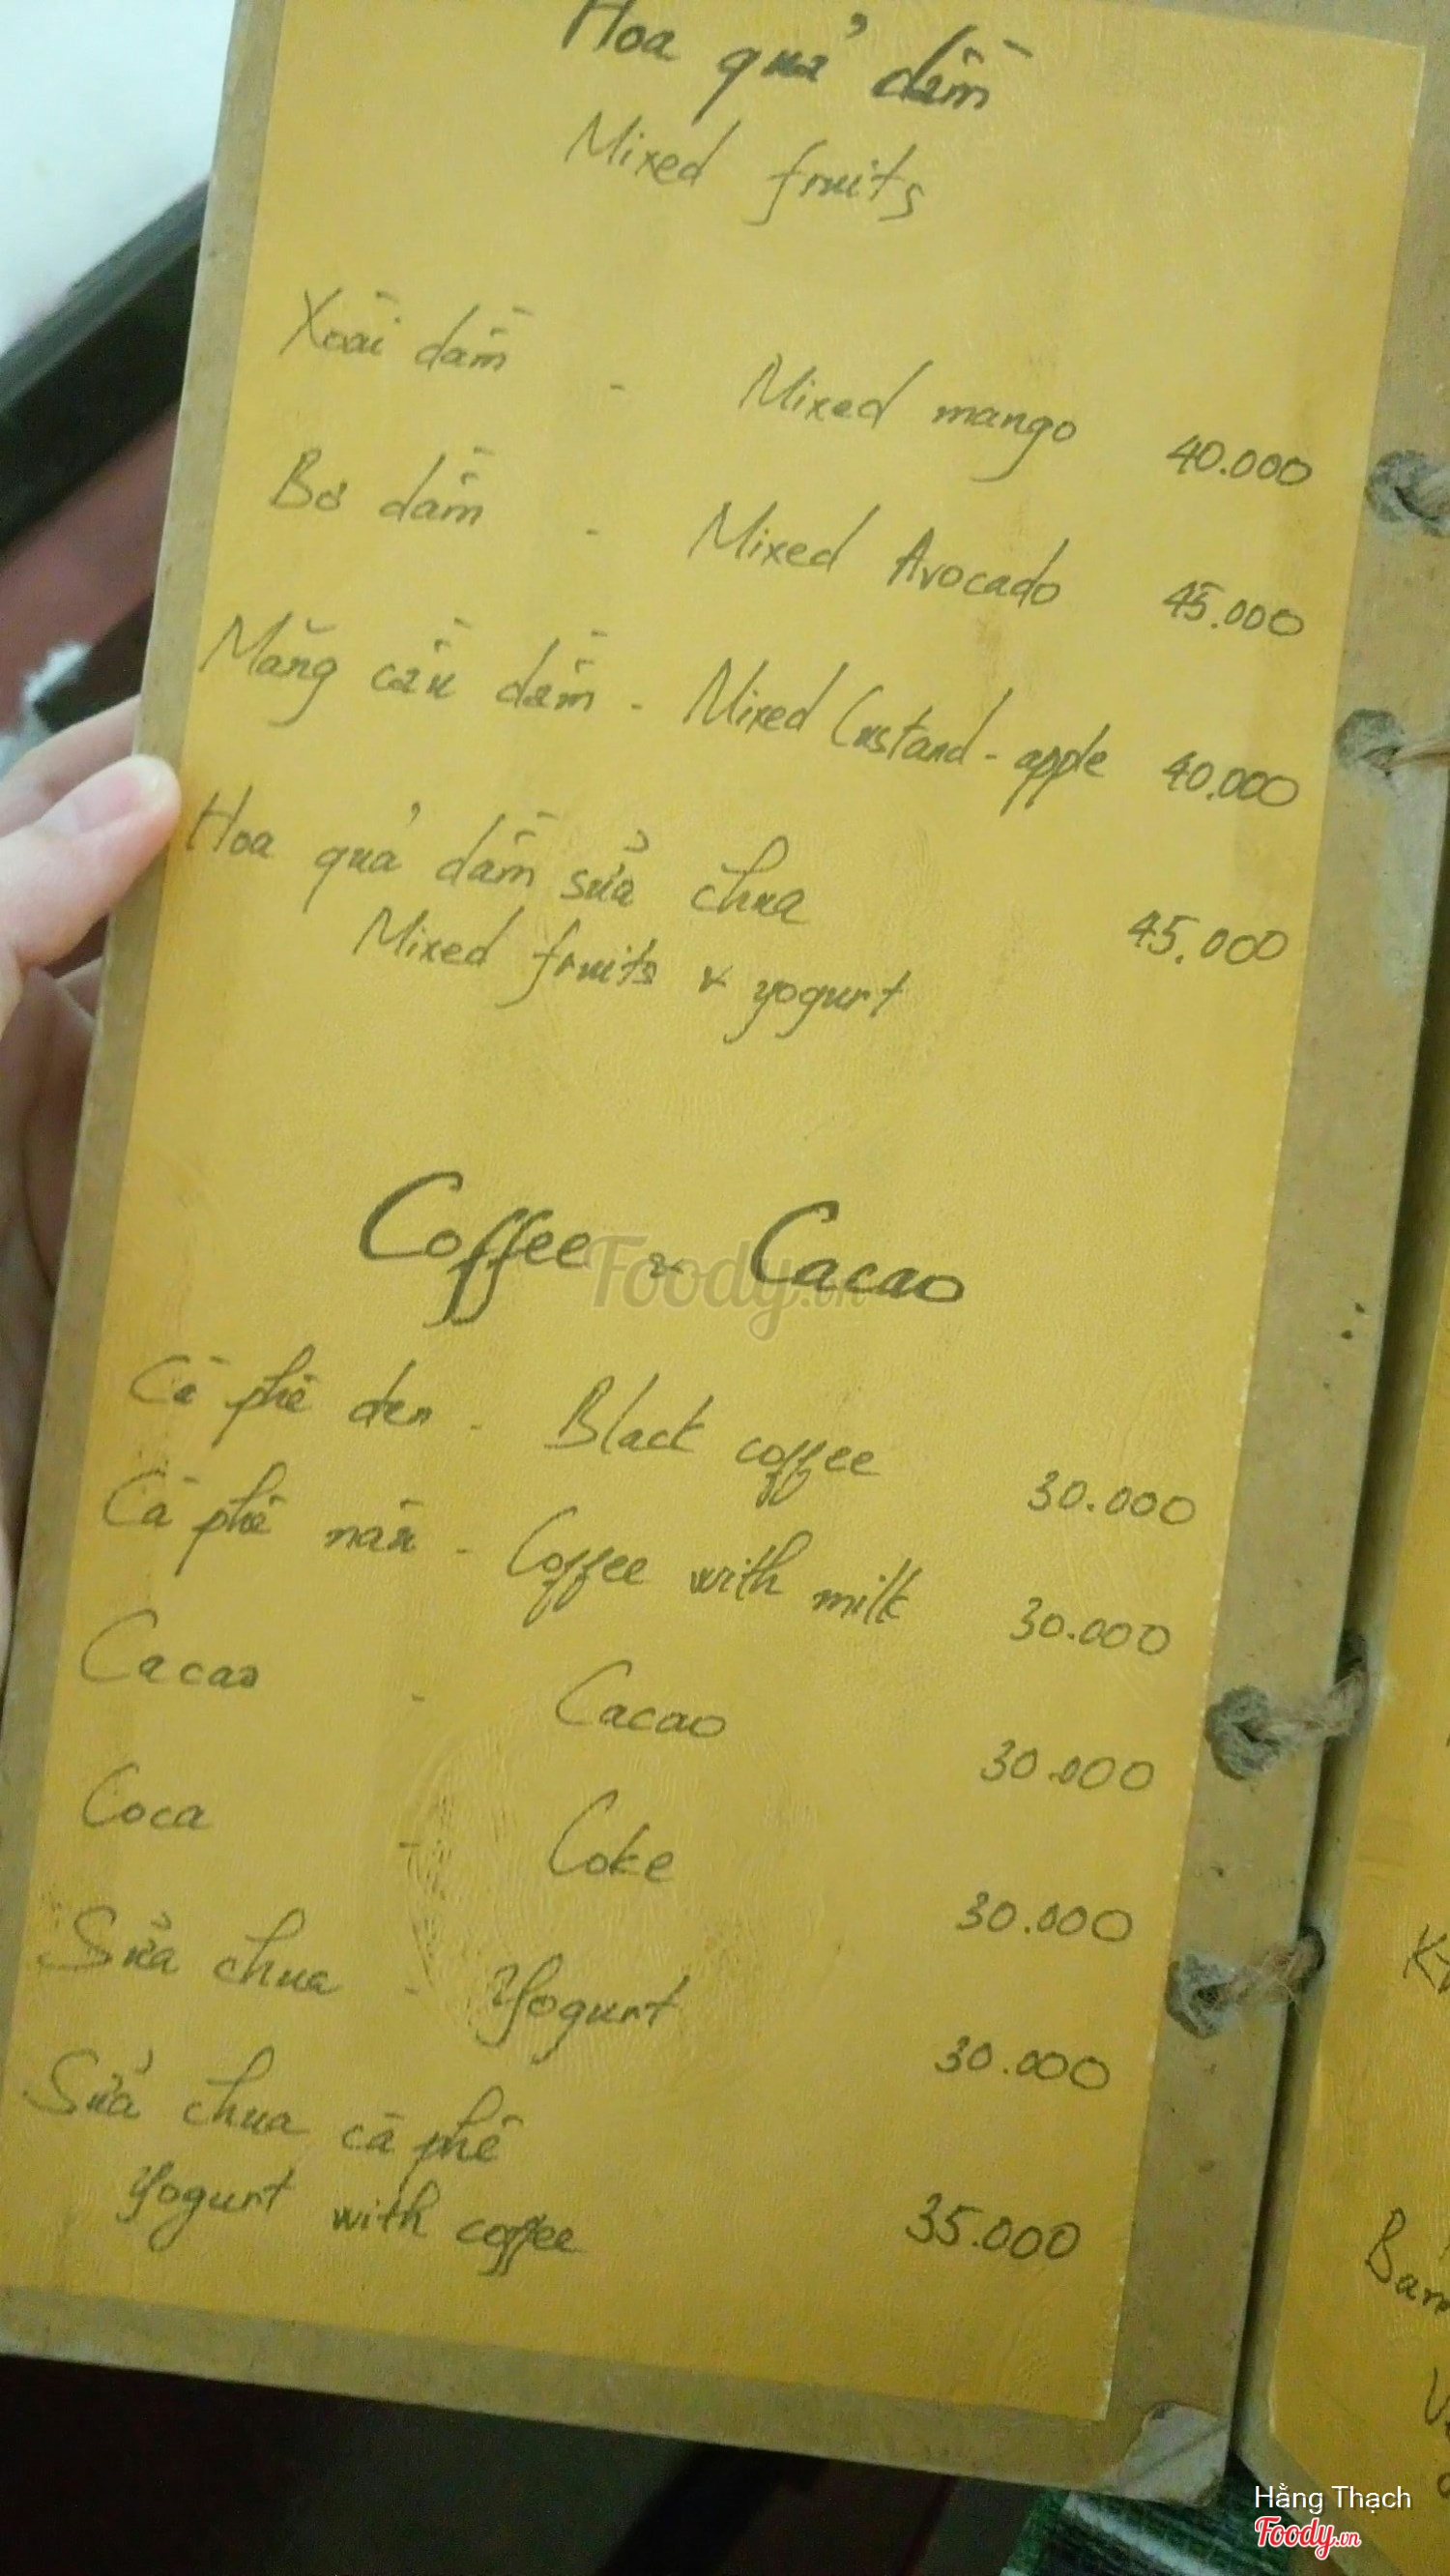 Hoa quả dầm
Mixed fruits
Xoài dầm - Mixed mango 40.000
Bơ dầm - Mixed Avocado 45.000
Mãng cầu dầm - Mixed Custand-apple 40.000
Hoa quả dầm sữa chua 45.000
Mixed fruits & yogurt
Coffee & Cacao
Cà phê đen - Black coffee 30.000
Cà phê nâu - Coffee with milk 30.000
Cacao - Cacao 30.000
Coca - Coke 30.000
Sữa chua - Yogurt 30.000
Sữa chua cà phê 35.000
Yogurt with coffee
Foody.vn
Hằng Thạch
Foody.vn